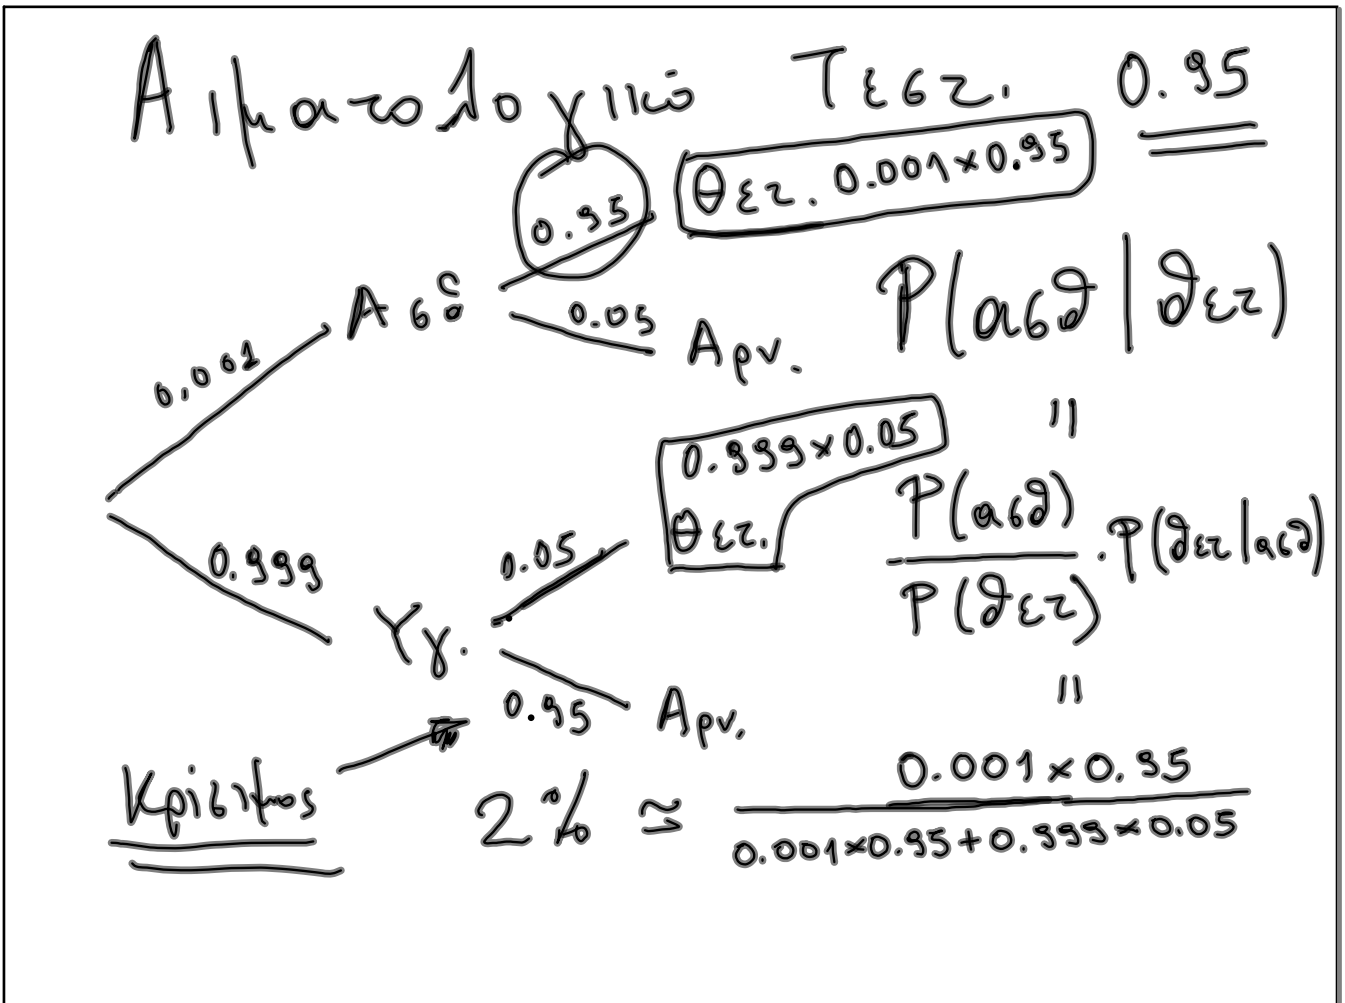 Αιματολογικό Τεστ. 0.95
0.95 Θετ. 0.001×0.95
Ασθ 0.05 Αρν. P(ασθ|θετ)
0.001 =
0.999×0.05
Θετ. P(ασθ)/P(θετ) · P(θετ|ασθ)
0.999 0.05
Υγ. =
0.95 Αρν.
Κρίσιμος 2% ≃ 0.001×0.95
0.001×0.95+0.999×0.05